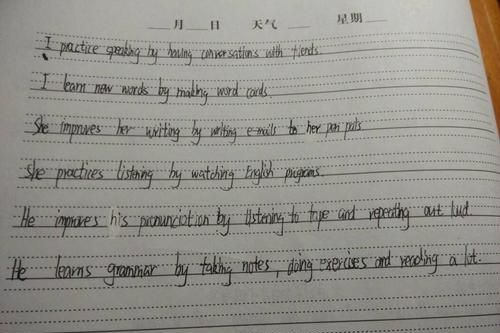 月 日 天气 星期
I practice speaking by having conversations with friends.
I learn new words by making word cards.
She improves her writing by writing e-mails to her pen pals
She practices listening by watching English programs.
He improves his pronunciation by listening to tape and repeating out lud.
He learns grammar by taking notes, doing exercises and reading a lot.